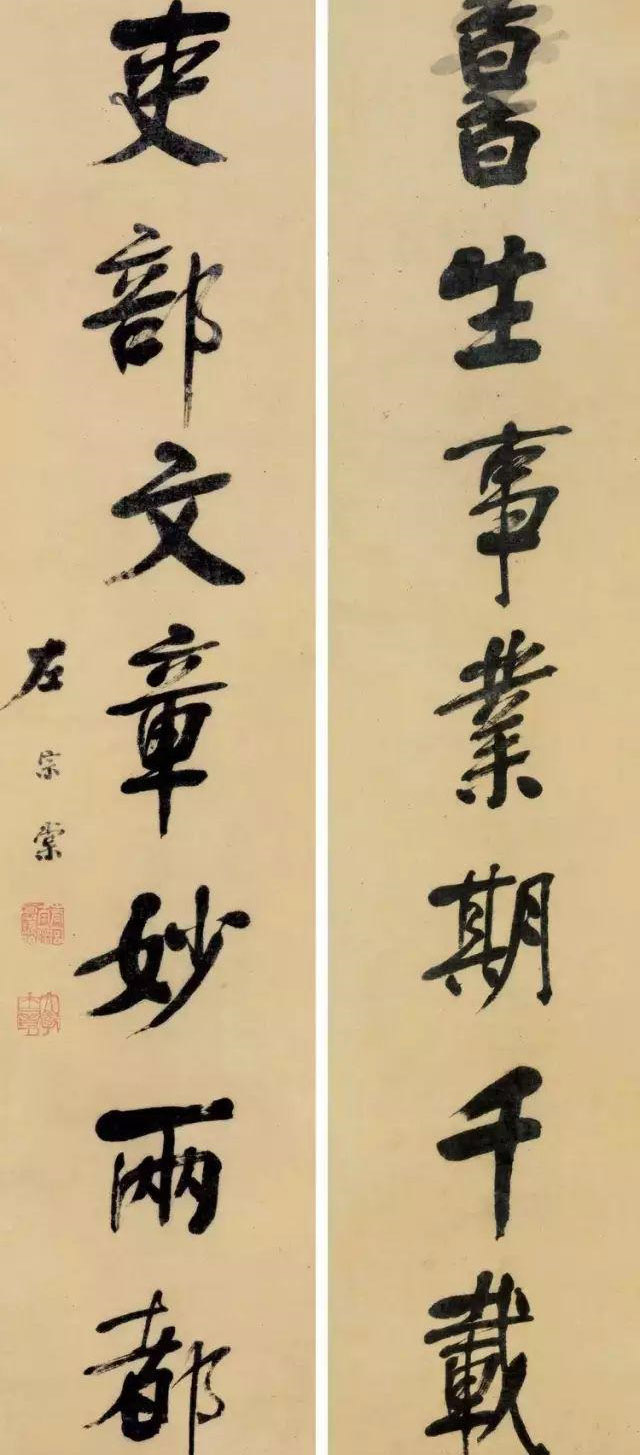 生事業期千載
吏部文章妙兩都
左宗棠